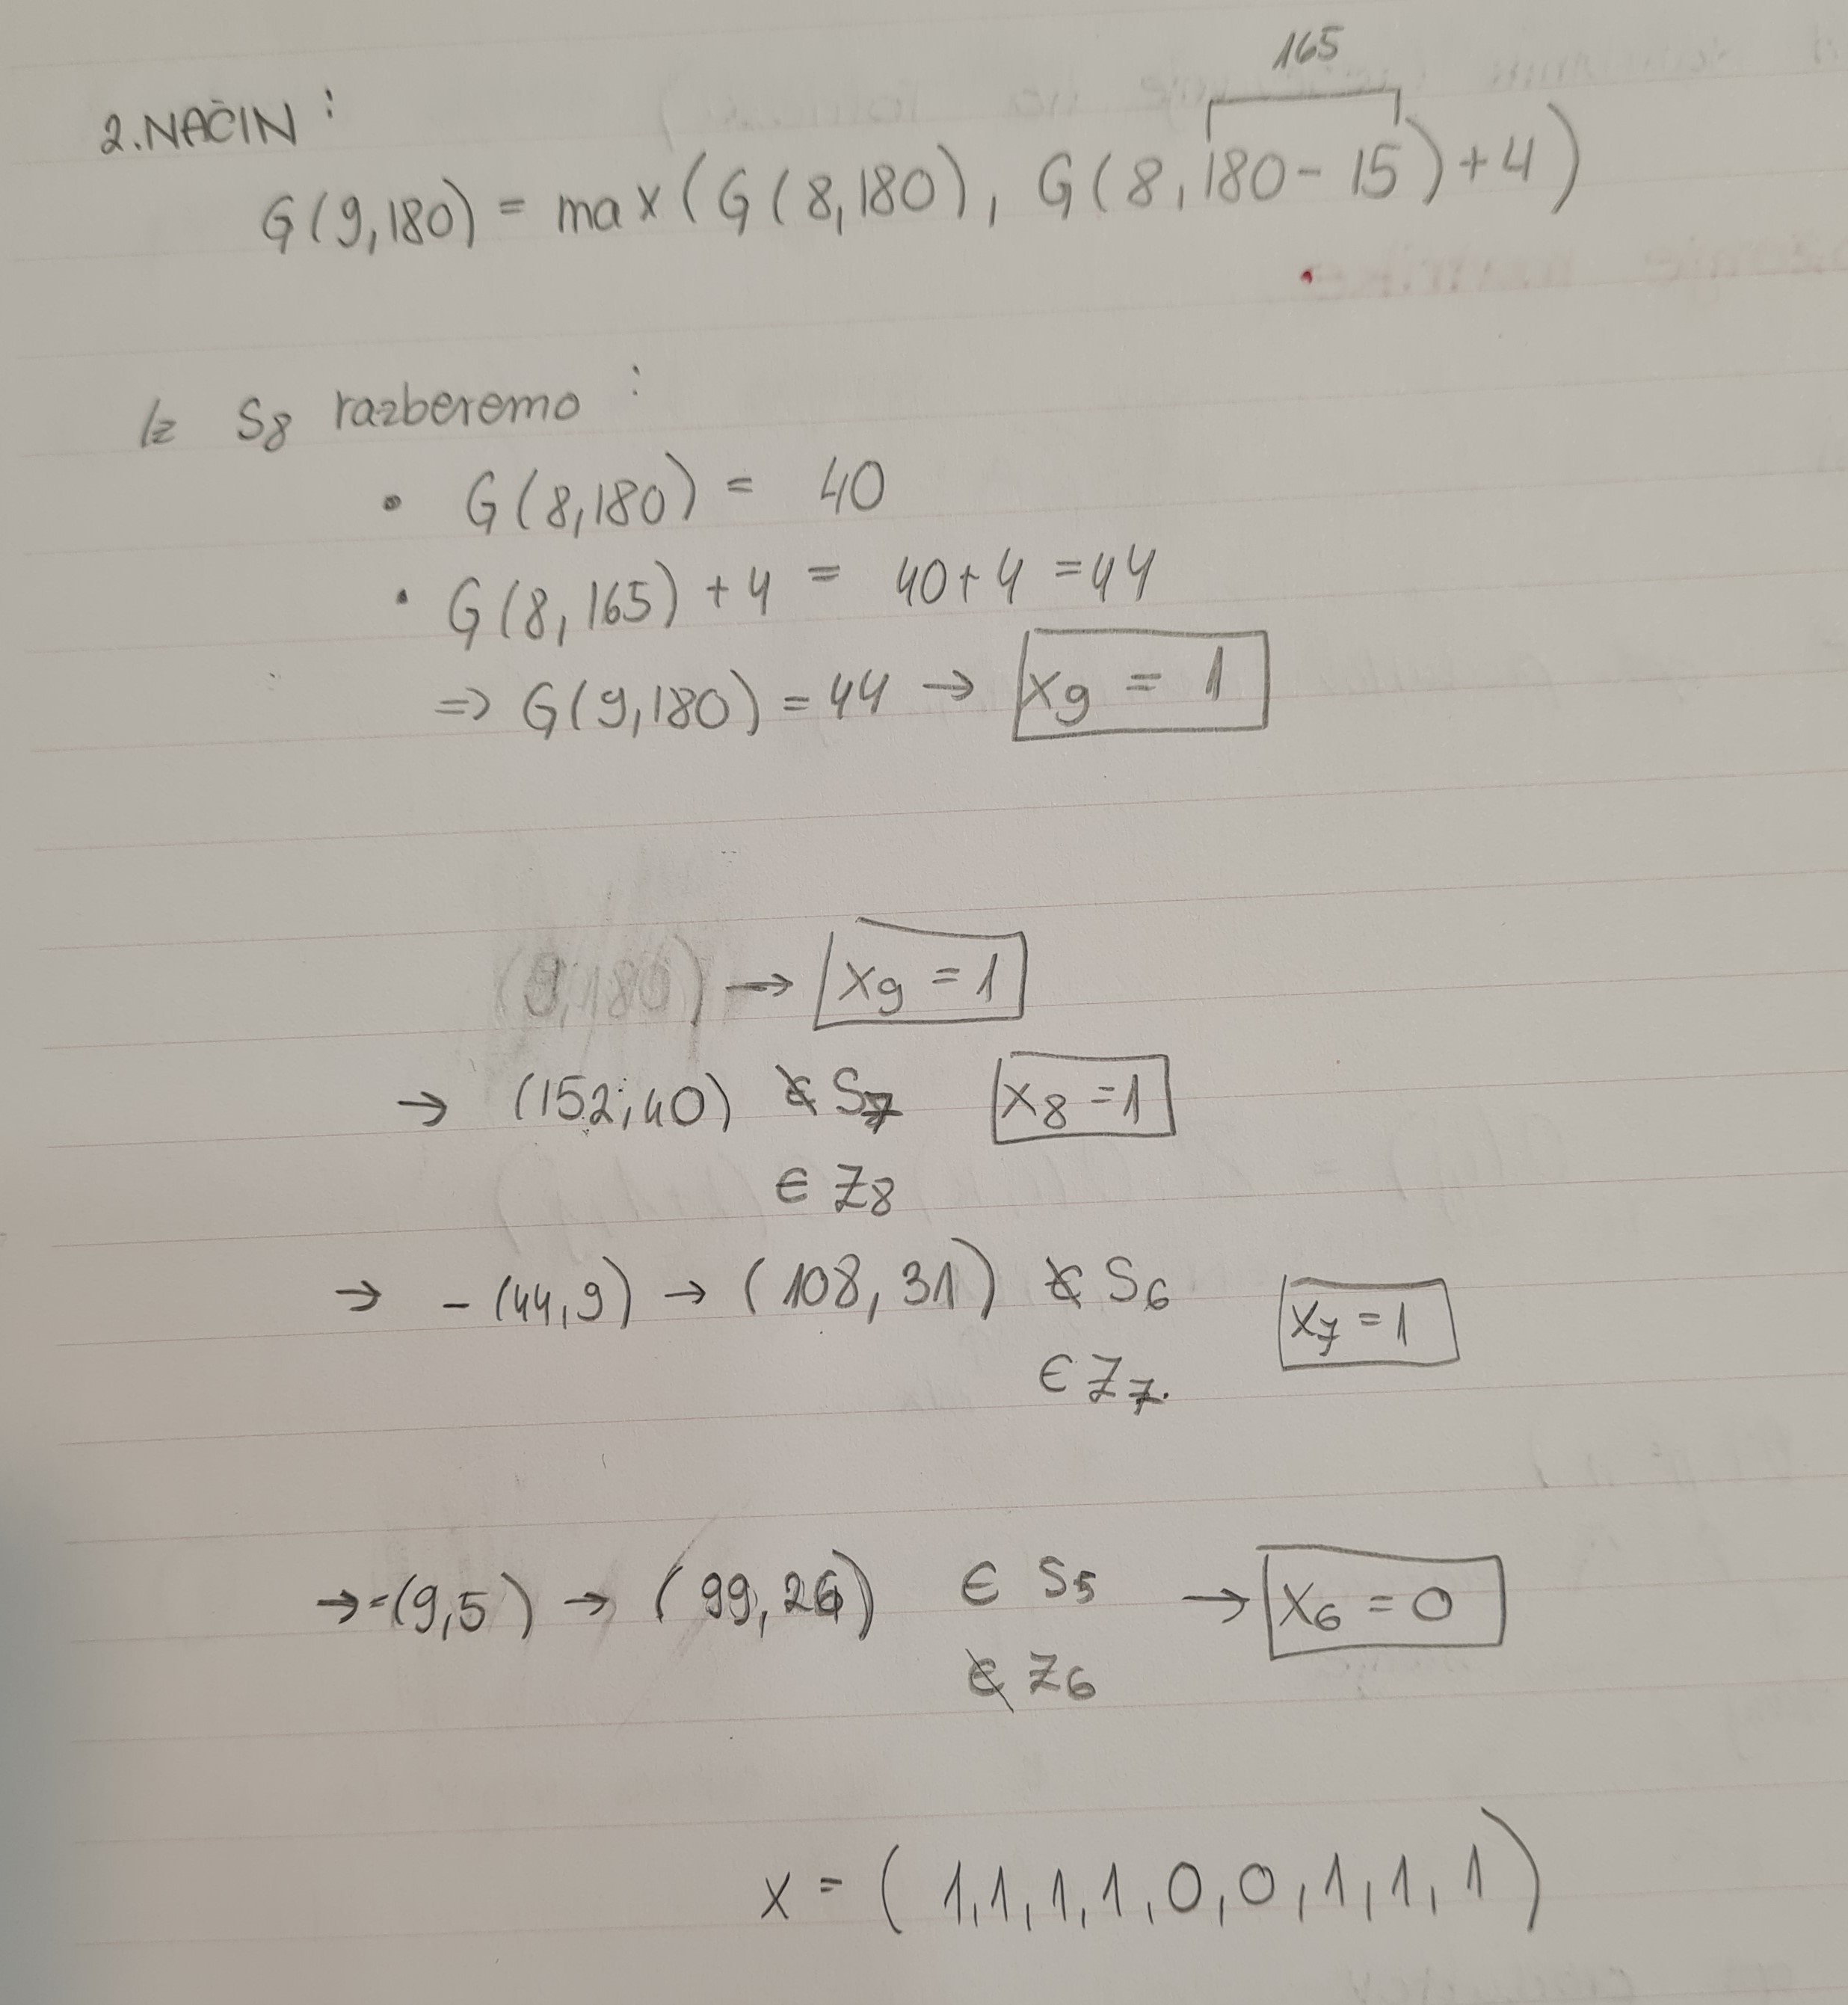 165
2. NAČIN :
G(9,180) = max(G(8,180), G(8,180-15)+4)
Iz S8 razberemo :
• G(8,180) = 40
• G(8,165) + 4 = 40+4 = 44
=> G(9,180) = 44 → x9 = 1
(9,180) → x9 = 1
→ (152,40) ∉ S7 x8 = 1
∈ Z8
→ - (44,9) → (108,31) ∉ S6 x7 = 1
∈ Z7
→ -(9,5) → (99,26) ∈ S5 → x6 = 0
∉ Z6
x = (1,1,1,1,0,0,1,1,1)